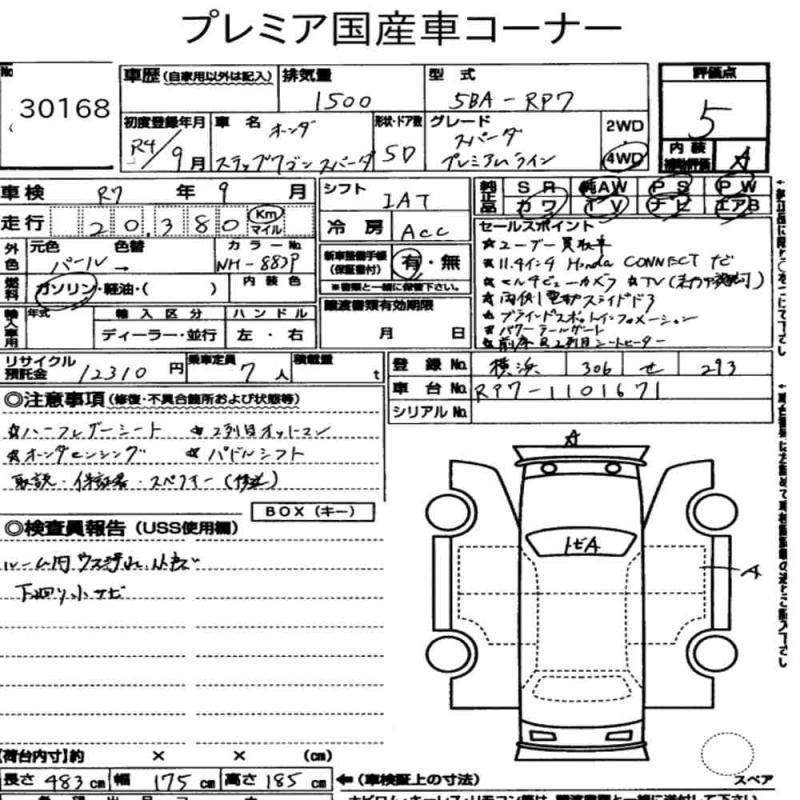 プレミア国産車コーナー
No. 30168
車歴 (自家用以外は記入) 排気量 1500 型式 5BA-RP7 評価点 5
初度登録年月 R4/9月 車名 ホンダ ステップワゴン スパーダ 形状・ドア数 5D グレード スパーダ プレミアムライン 2WD 4WD 内装補助評価 A
車検 R7年 9月 シフト IAT 純正品 SR 純AW PS PW
カワ TV ナビ エアB
走行 20,380 Km マイル 冷房 Acc
セールスポイント
外色 元色 パール 色替 → カラーNo. NH-883P 新車整備手帳(保証書付) 有・無
☆ユーザー買取車
☆11.4インチ Honda CONNECT ナビ
燃料 ガソリン・軽油・( ) 内装色 ※書類と一緒に保管下さい。
☆マルチビューカメラ ☆TV
☆両側電動スライドドア
輸入車用 年式 輸入区分 ハンドル 譲渡書類有効期限
☆ブラインドスポットインフォメーション
ディーラー・並行 左・右 月 日
☆パワーテールゲート
☆前席&2列目シートヒーター
リサイクル預託金 12310円 乗車定員 7人 積載量 t
登録No. 横浜 306 せ 293
車台No. RP7-1101671
シリアルNo.
◎注意事項 (修復・不具合箇所および状態等)
☆ハーフレザーシート ☆2列目オットマン
☆ホンダセンシング ☆パドルシフト
取説・保証書・スペアキー(後送)
BOX(キー)
◎検査員報告 (USS使用欄)
ルーム内ウス汚れ、
下回り小サビ
A
トビA
A
スペア
【荷台内寸】約 × × (cm)
長さ 483cm 幅 175cm 高さ 185cm ←(車検証上の寸法)